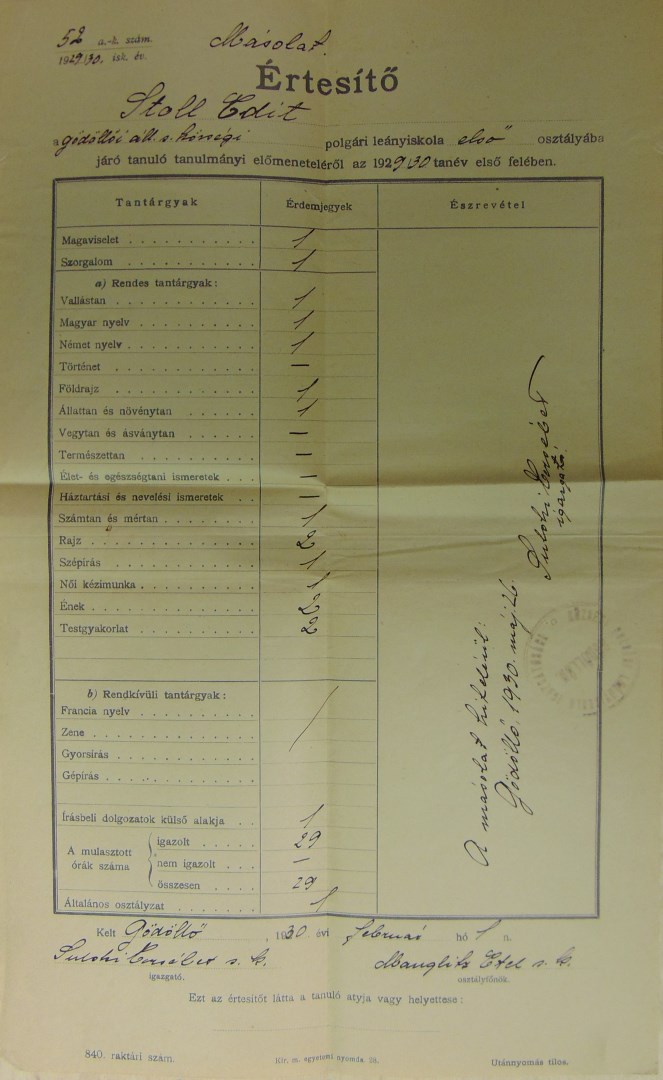 52 a.-k. szám.
1929/30. isk. év.
Másolat.
Értesítő
Stoll Edit
a gödöllői áll. s. községi polgári leányiskola első osztályába
járó tanuló tanulmányi előmeneteléről az 1929/30 tanév első felében.
Tantárgyak Érdemjegyek Észrevétel
Magaviselet 1
Szorgalom 1
a) Rendes tantárgyak:
Vallástan 1
Magyar nyelv 1
Német nyelv 1
Történet —
Földrajz 1
Állattan és növénytan 1
Vegytan és ásványtan —
Természettan —
Élet- és egészségtani ismeretek —
Háztartási és nevelési ismeretek —
Számtan és mértan 1
Rajz 2
Szépírás 1
Női kézimunka 1
Ének 2
Testgyakorlat 2
b) Rendkívüli tantárgyak:
Francia nyelv
Zene
Gyorsírás
Gépírás
Írásbeli dolgozatok külső alakja 1
A mulasztott órák száma
igazolt 29
nem igazolt —
összesen 29
Általános osztályzat 1
A másolat hiteléül:
Gödöllő, 1930. máj. 26.
Erzsébet
igazgató
Kelt Gödöllő, 1930 évi február hó 1 n.
Erzsébet s. k. Manglitz Etel s. k.
igazgató. osztályfőnök.
Ezt az értesítőt látta a tanuló atyja vagy helyettese:
840. raktári szám. Kir. m. egyetemi nyomda 28. Utánnyomás tilos.